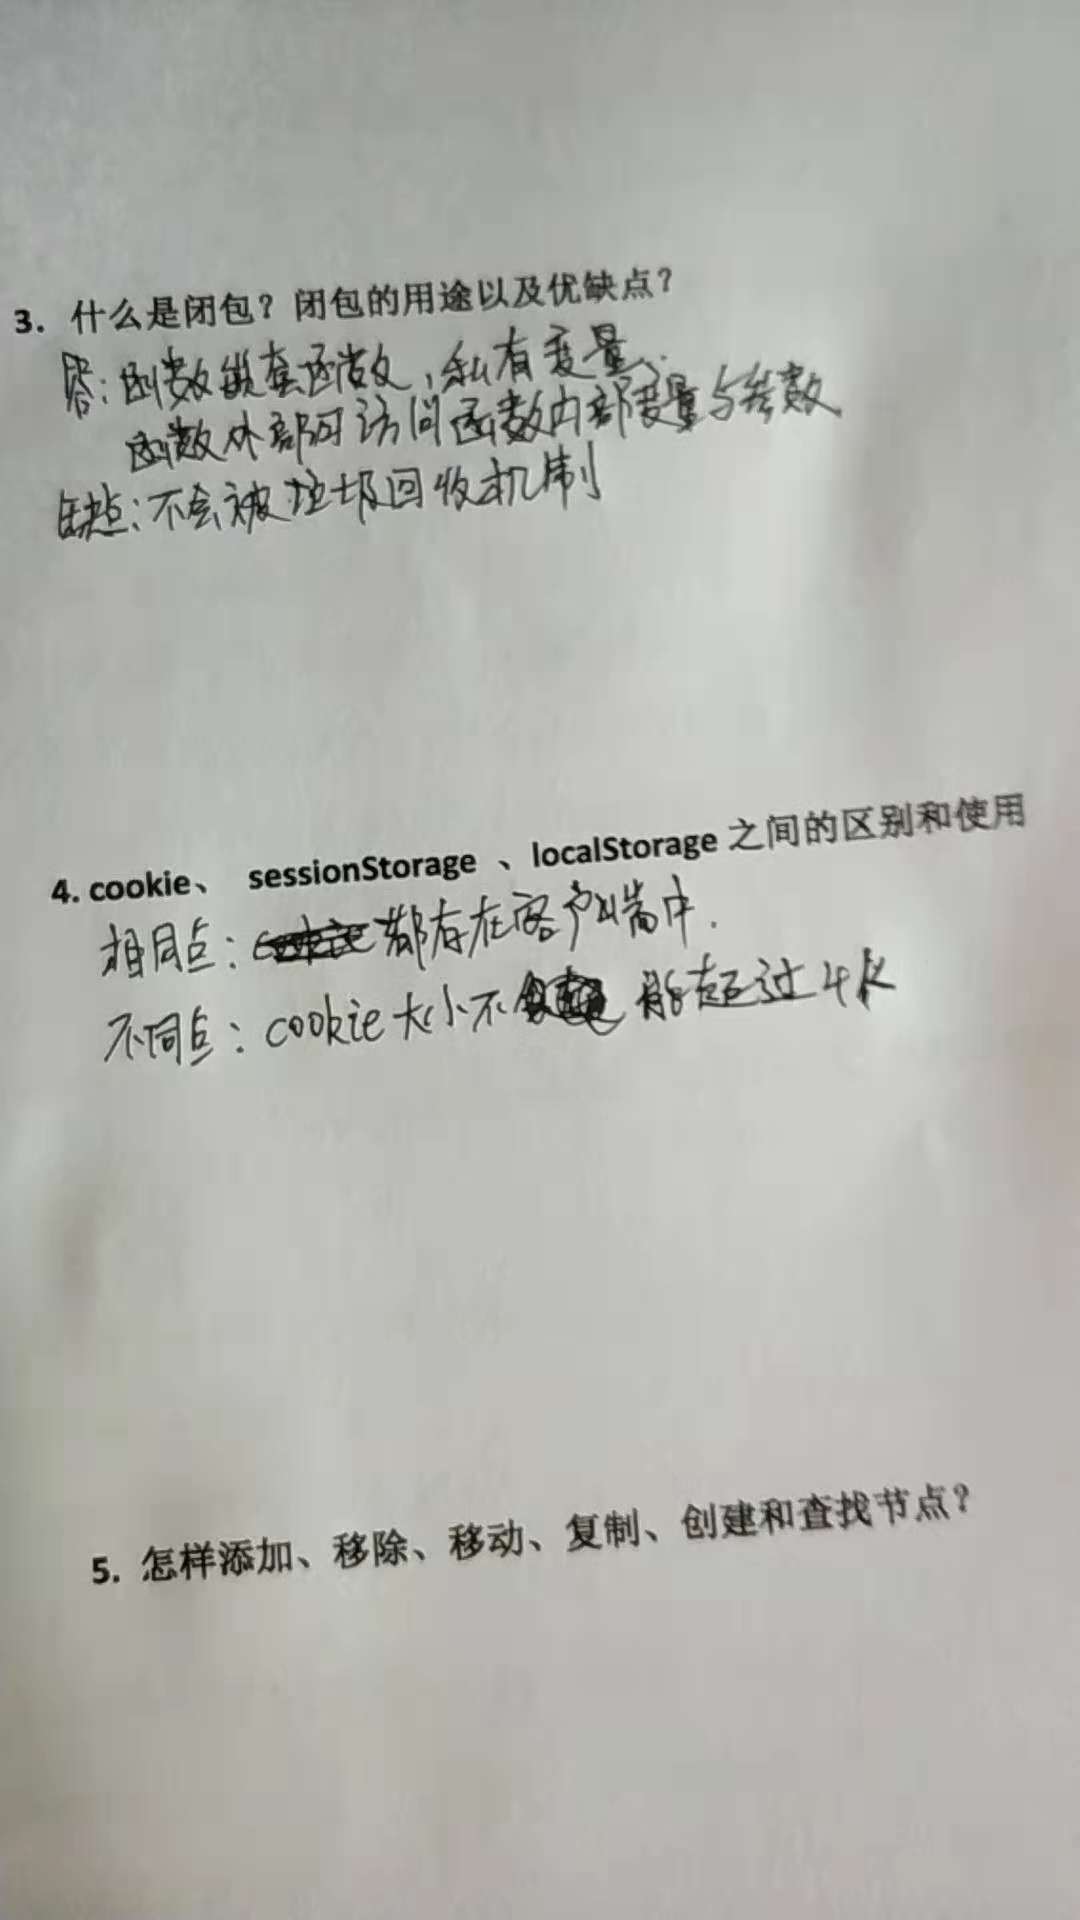 3. 什么是闭包？闭包的用途以及优缺点？
答：函数嵌套函数，私有变量，
函数外部可访问函数内部变量与参数
缺点：不会被垃圾回收机制
4. cookie、 sessionStorage 、localStorage 之间的区别和使用
相同点：都存在客户端中.
不同点：cookie大小不能超过4K
5. 怎样添加、移除、移动、复制、创建和查找节点？